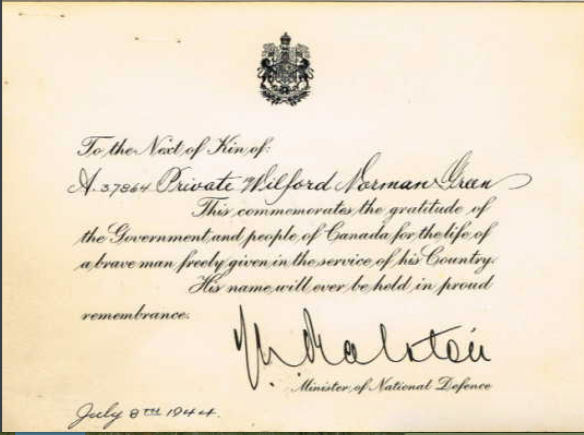 To the Next of Kin of:
A. 37864 Private Wilford Norman Green
This commemorates the gratitude of
the Government and people of Canada for the life of
a brave man freely given in the service of his Country.
His name will ever be held in proud
remembrance.
Ralston
Minister of National Defence
July 8TH 1944.